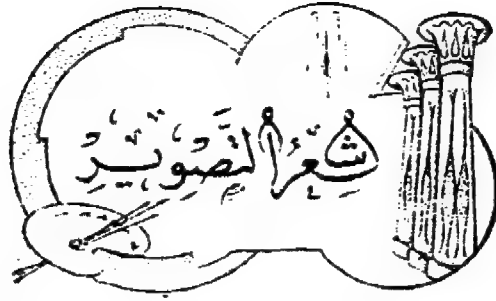 شعر التصوير